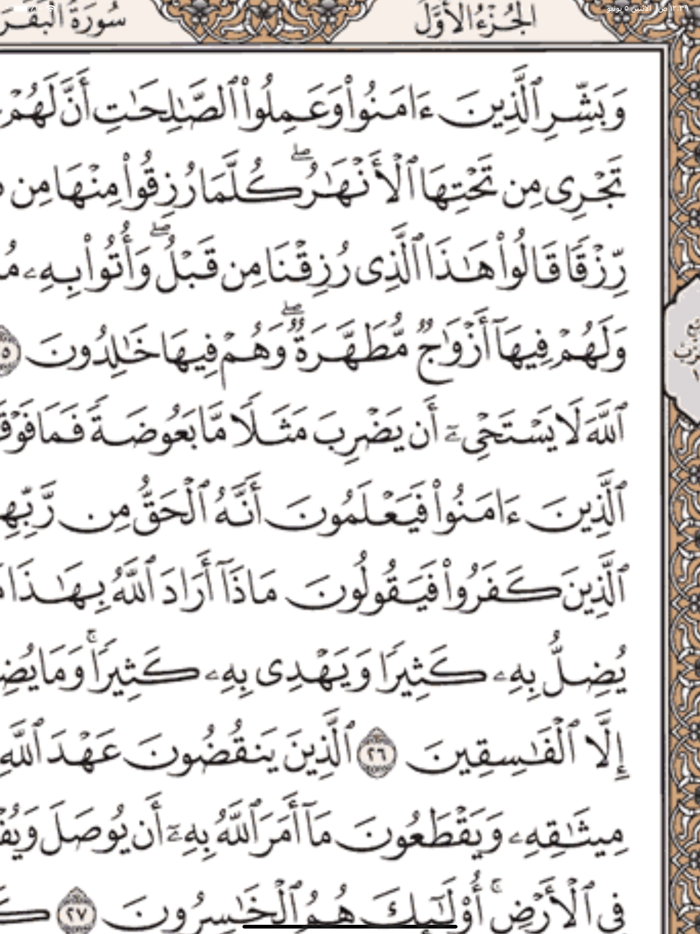 ١٢:٣٩ ص الاثنين ٥ يونيو
الجُزْءُ الأَوَّل سُورَةُ البَقَر
وَبَشِّرِ ٱلَّذِينَ ءَامَنُوا۟ وَعَمِلُوا۟ ٱلصَّٰلِحَٰتِ أَنَّ لَهُمْ
تَجْرِى مِن تَحْتِهَا ٱلْأَنْهَٰرُ ۖ كُلَّمَا رُزِقُوا۟ مِنْهَا مِن
رِّزْقًا قَالُوا۟ هَٰذَا ٱلَّذِى رُزِقْنَا مِن قَبْلُ ۖ وَأُتُوا۟ بِهِۦ مُ
وَلَهُمْ فِيهَآ أَزْوَٰجٌ مُّطَهَّرَةٌ ۖ وَهُمْ فِيهَا خَٰلِدُونَ ٥
ٱللَّهَ لَا يَسْتَحْىِۦٓ أَن يَضْرِبَ مَثَلًا مَّا بَعُوضَةً فَمَا فَوْقَ
ٱلَّذِينَ ءَامَنُوا۟ فَيَعْلَمُونَ أَنَّهُ ٱلْحَقُّ مِن رَّبِّهِ
ٱلَّذِينَ كَفَرُوا۟ فَيَقُولُونَ مَاذَآ أَرَادَ ٱللَّهُ بِهَٰذَا مَ
يُضِلُّ بِهِۦ كَثِيرًا وَيَهْدِى بِهِۦ كَثِيرًا ۚ وَمَا يُضِ
إِلَّا ٱلْفَٰسِقِينَ ٢٦ ٱلَّذِينَ يَنقُضُونَ عَهْدَ ٱللَّهِ
مِيثَٰقِهِۦ وَيَقْطَعُونَ مَآ أَمَرَ ٱللَّهُ بِهِۦٓ أَن يُوصَلَ وَيُفْ
فِى ٱلْأَرْضِ ۚ أُو۟لَٰٓئِكَ هُمُ ٱلْخَٰسِرُونَ ٢٧ كَ